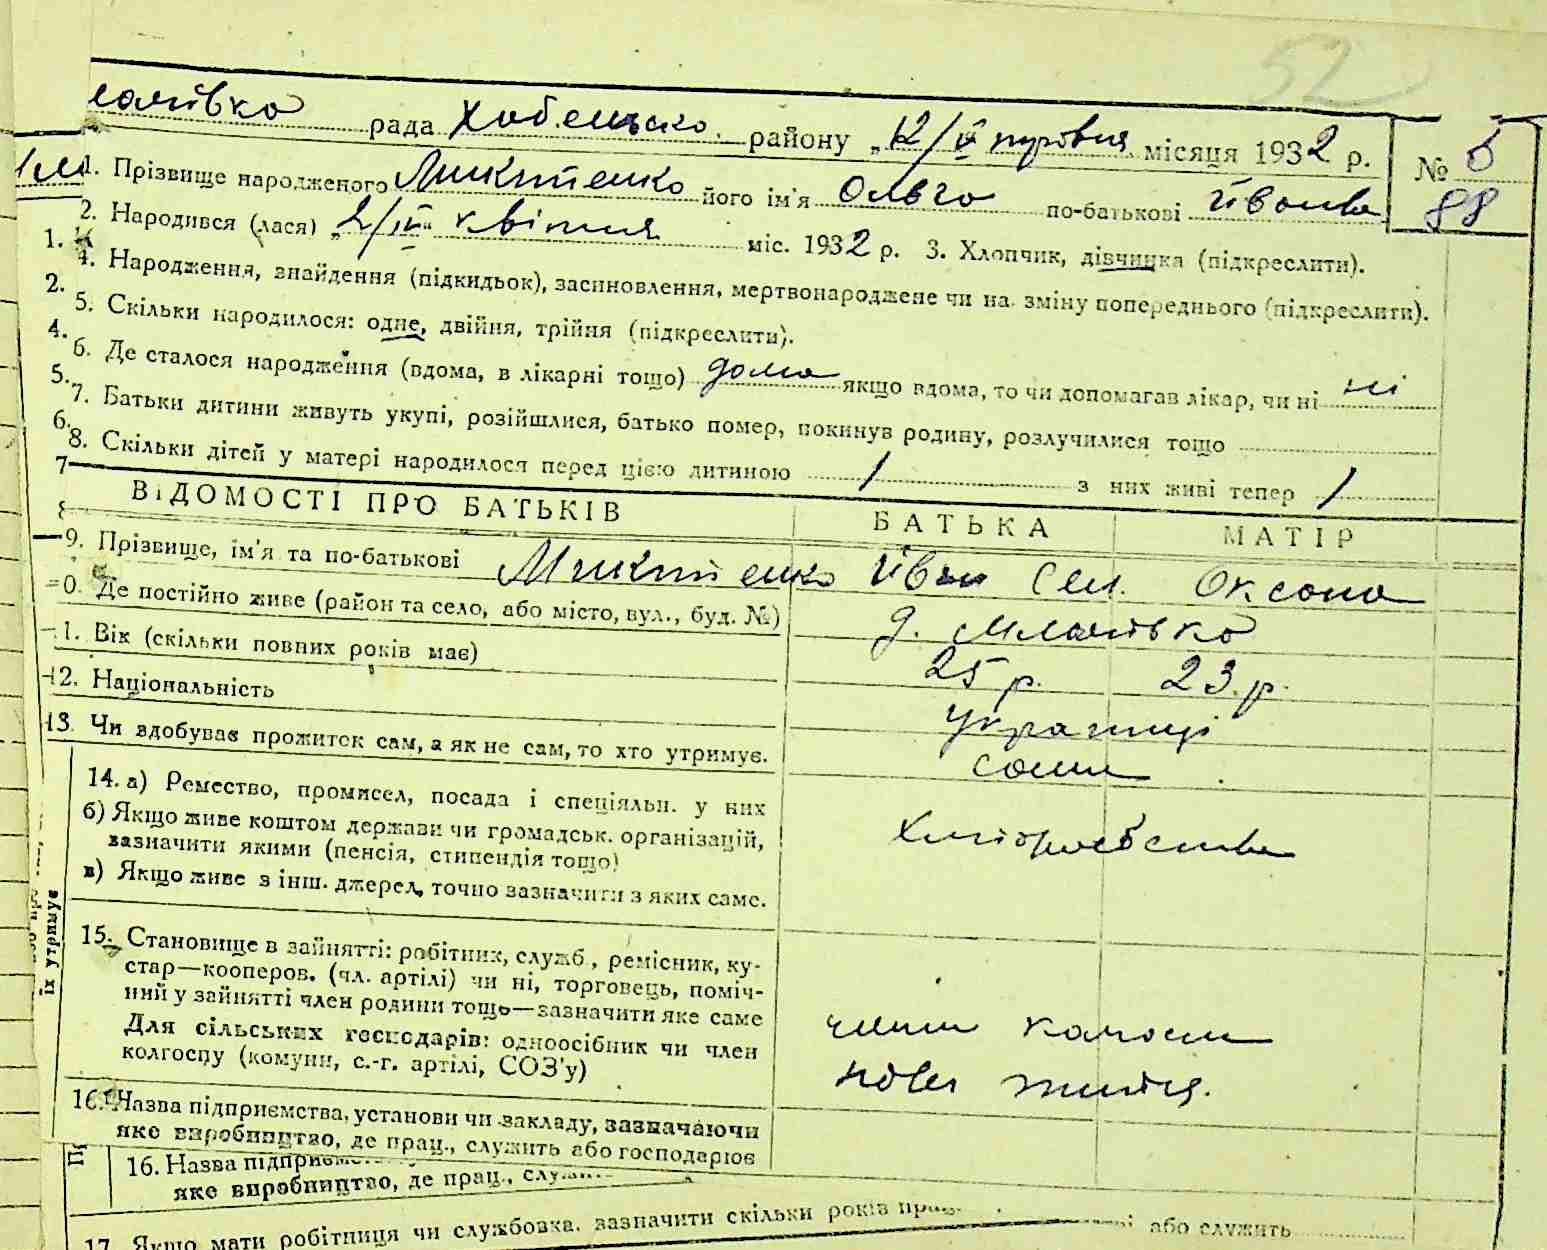 52
рада Хоб.емсько. району „12/V травня місяця 1932 р. № 5
1. Прізвище народженого Микитенко його ім'я Ольга по-батькові Йванів 88
2. Народився (лася) „2/IV" квітня міс. 1932 р. 3. Хлопчик, дівчинка (підкреслити).
4. Народження, знайдення (підкидьок), засиновлення, мертвонароджене чи на зміну попереднього (підкреслити).
5. Скільки народилося: одне, двійня, трійня (підкреслити).
6. Де сталося народження (вдома, в лікарні тощо) дома якщо вдома, то чи допомагав лікар, чи ні ні
7. Батьки дитини живуть укупі, розійшлися, батько помер, покинув родину, розлучилися тощо
8. Скільки дітей у матері народилося перед цією дитиною 1 з них живі тепер 1
ВІДОМОСТІ ПРО БАТЬКІВ БАТЬКА МАТІР
9. Прізвище, ім'я та по-батькові Микитенко Йван Сем. Оксана
0. Де постійно живе (район та село, або місто, вул., буд. №) д. Млачівка
1. Вік (скільки повних років має) 25 р. 23 р.
12. Національність українці
13. Чи здобував прожиток сам, а як не сам, то хто утримує. сами
14. а) Ремество, промисел, посада і спеціяльн. у них
б) Якщо живе коштом держави чи громадськ. організацій, хліборобства
зазначити якими (пенсія, стипендія тощо)
в) Якщо живе з інш. джерел, точно зазначити з яких саме.
їх утримує
15. Становище в зайнятті: робітник, служб., ремісник, ку-
стар—кооперов. (чл. артілі) чи ні, торговець, поміч-
ний у зайнятті член родини тощо—зазначити яке саме
Для сільських господарів: одноосібник чи член члени
колгоспу (комуни, с.-г. артілі, СОЗ'у) нове життя.
16. Назва підприємства, установи чи закладу, зазначаючи
яке виробництво, де прац., служить або господарює
16. Назва підприєм
яке виробництво, де прац., служ
17. Якщо мати робітниця чи службовка, зазначити скільки років прац або служить